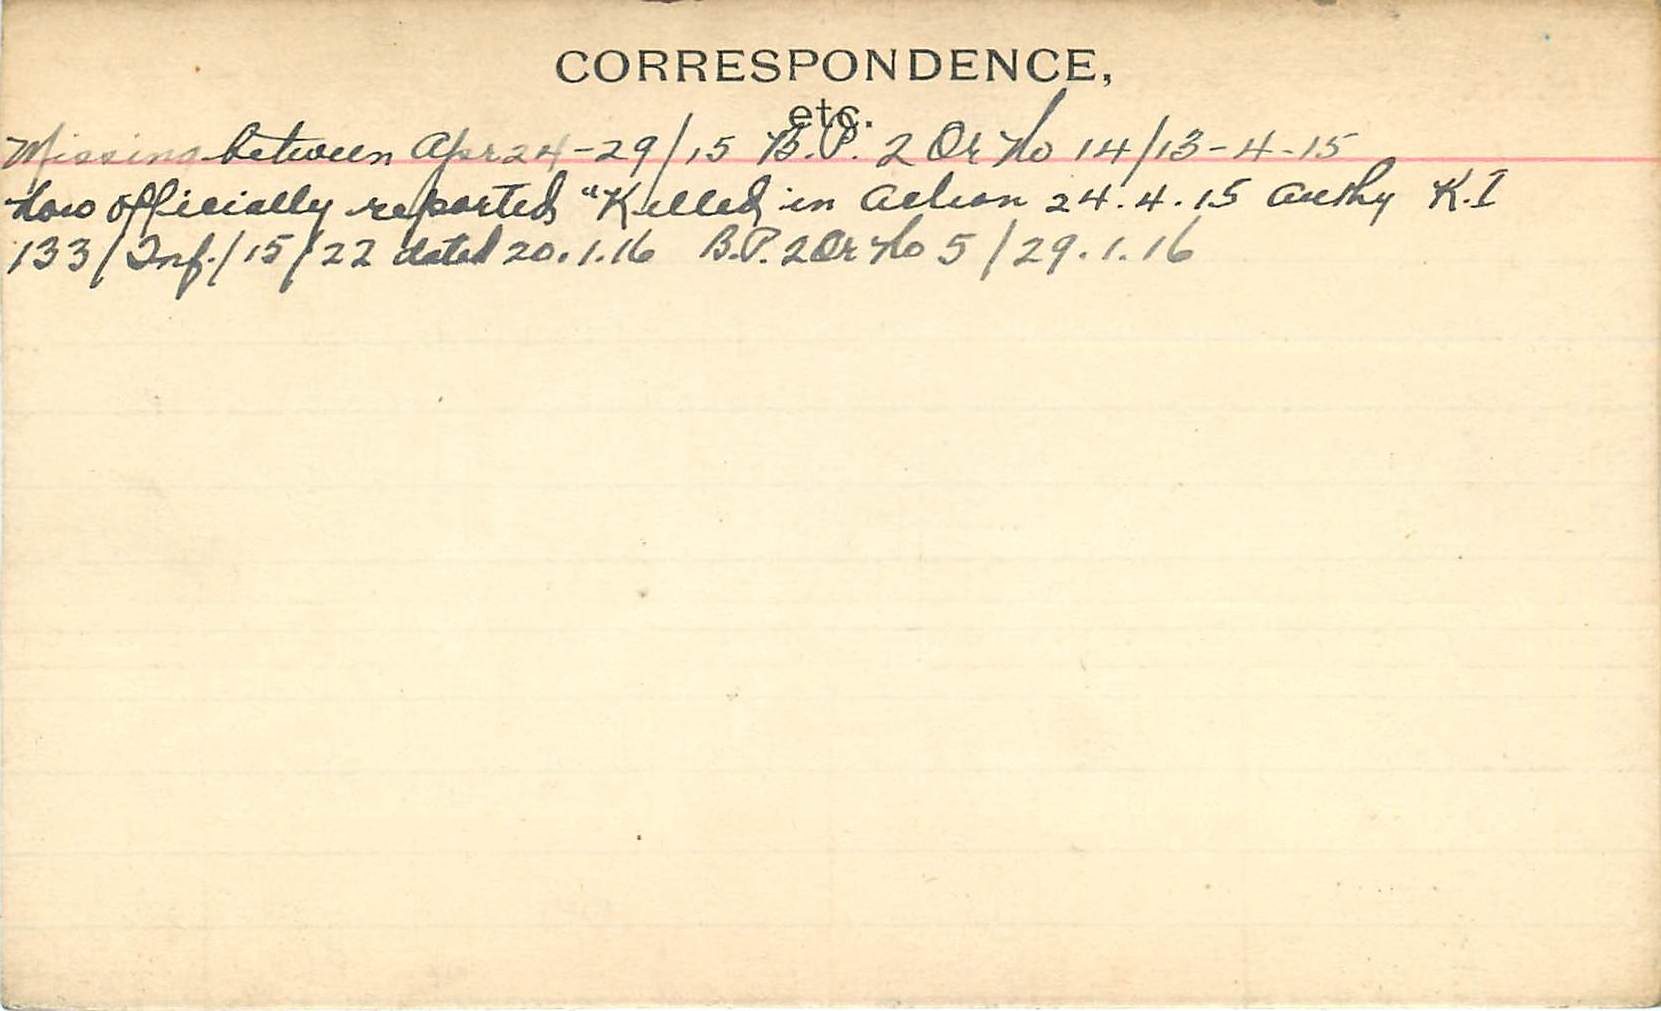 CORRESPONDENCE,
etc.
Missing between Apr 24-29/15 B.P. 2 Or No 14/13-4-15
Now officially reported "Killed in Action 24.4.15 Authy K.I
133/Inf./15/22 dated 20.1.16 B.P. 2 Or No 5/29.1.16